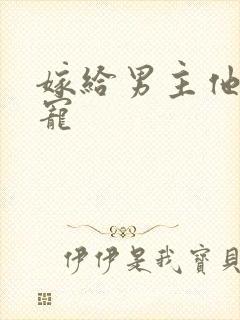 嫁给男主他
寵
伊伊是我寶貝